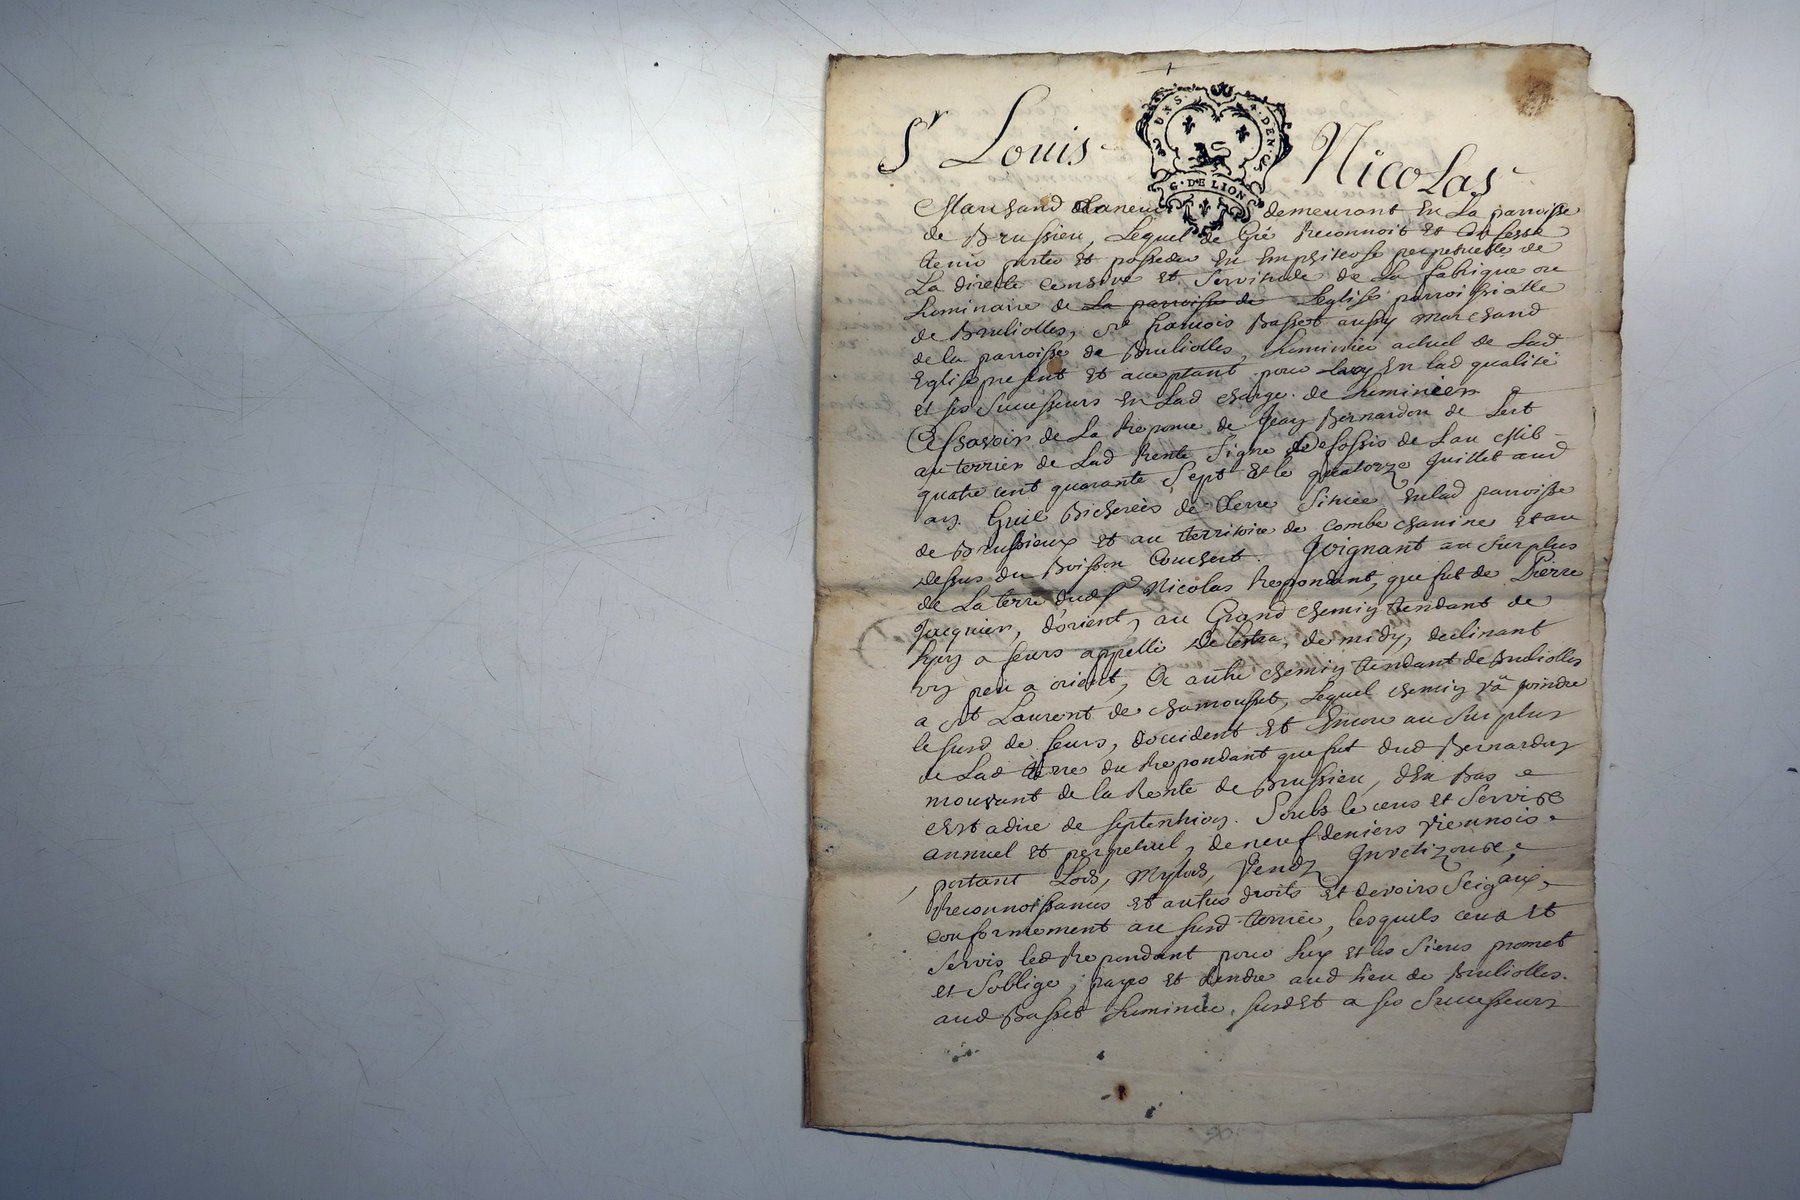 Sr Louis Nicolas
DEUX S. DEN. 
G. DE LION
Marchand demeurant En La parroisse
de Brussieu, Lequel de Gré Reconnoit Et Confesse
tenir porter Et posseder En Emphiteose perpetuelle de
La directe Censive Et Servitude de La fabrique ou
Luminaire de La parroisse de Leglise parroissialle
de Bruliolles, Sr francois Basset aussy marchand
de la parroisse de Bruliolles, Luminier actuel de Lad
Eglise present Et acceptant pour Luy En lad qualité
et ses Successeurs En Lad charge de Luminier
Assavoir de La Reponce de Jean Bernardon de Lert
au terrier de Lad Rente Signé de Lan Mil
quatre cent quarante Sept Et le quatorze Juillet aud
an. Huit Bicherées de Terre Situee En lad parroisse
de Brussieux Et au territoire de Combe chanine Et au
dessus du Boisson Couchert. Joignant au Surplus
de La terre dud Sr Nicolas Repondant, que fut de Pierre
Jacquier, d'orient, au Grand chemin tendant de
Lyon a feurs appellé De Lestra, de midy, declinant
un peu a orient, Et autre chemin tendant de Bruliolles
a St Laurent de chamousset, Lequel chemin va joindre
le susd de feurs, d'occident Et Encore au Surplus
de Lad terre du Repondant que fut dud Bernardon
mouvant de la Rente de Brussieu, d'En Bas
cest adire de septentrion. Soubs le cens Et Servise
annuel Et perpetuel, de neuf deniers viennois
portant Lods, Mylods, Vendz Investizoure,
Reconnoissances Et autres droits Et devoirs Seigaux
conformement au susd terrier, lesquels cens Et
Servis led Repondant pour Luy Et les Siens promet
et Soblige, payer Et Rendre aud lieu de Bruliolles
aud Basset Luminier susd Et a ses Successeurs